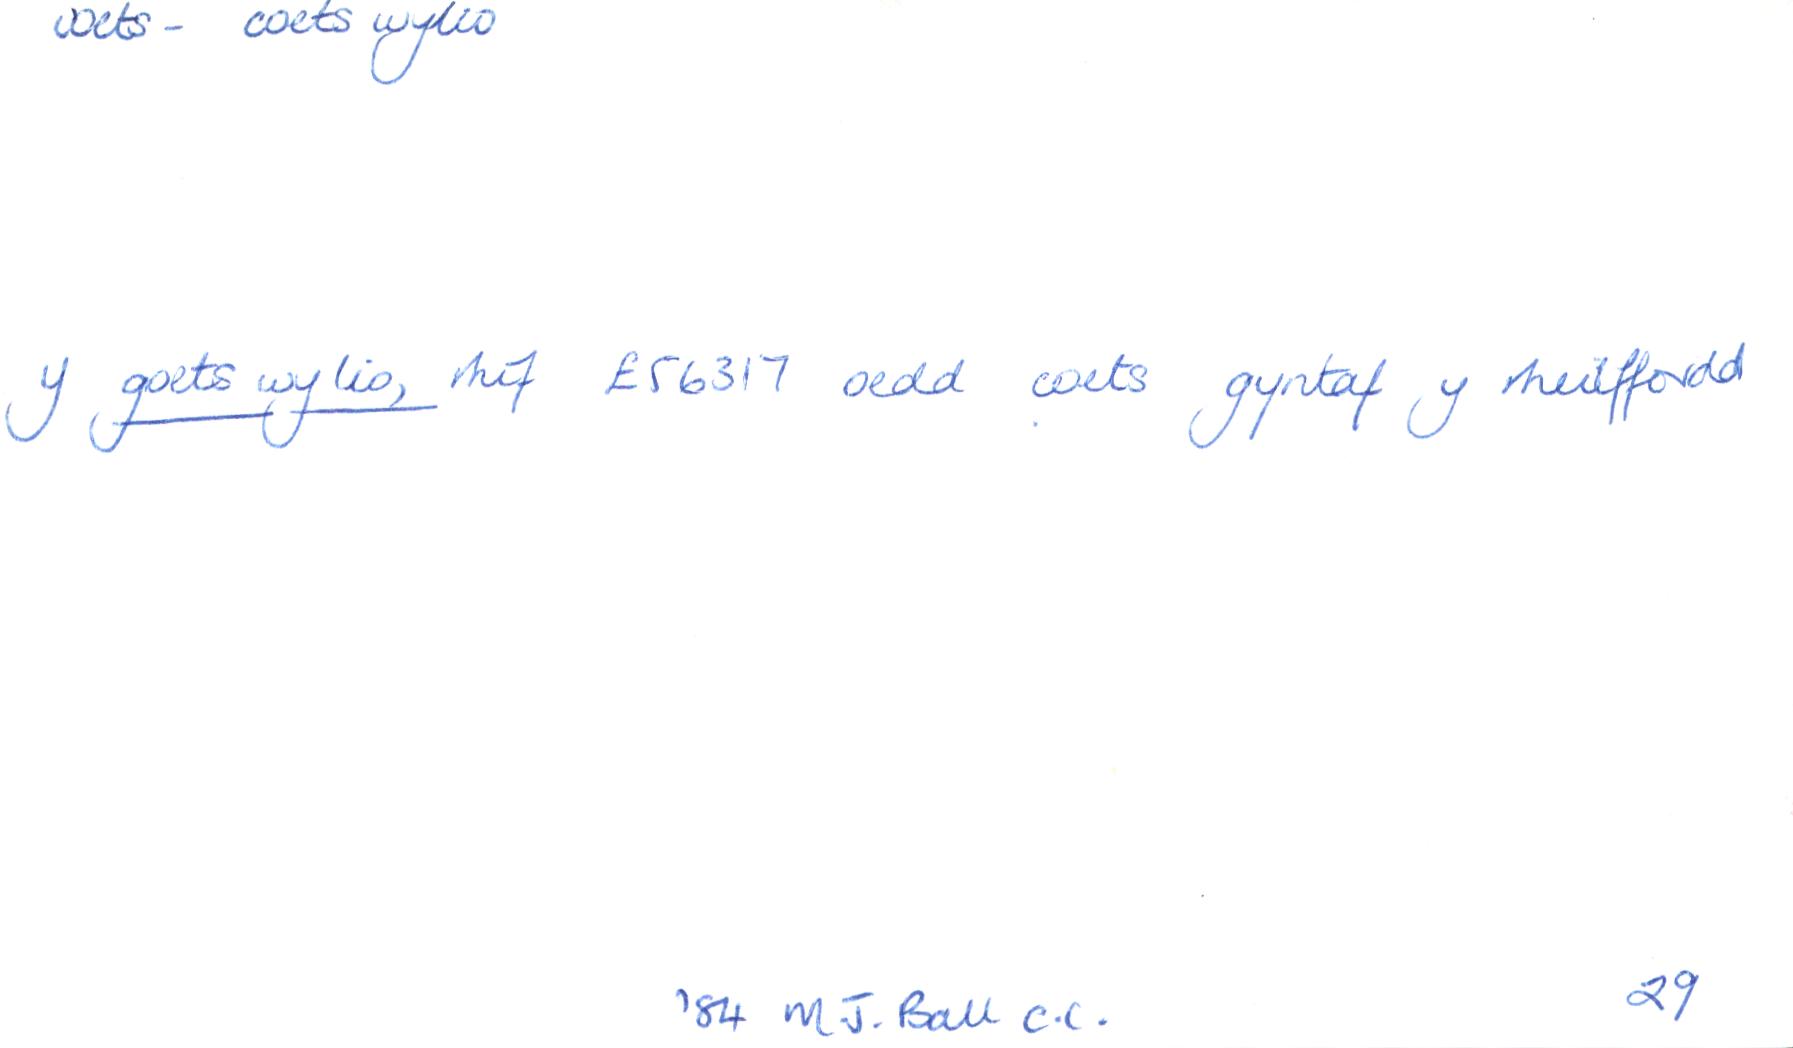 coets - coets wylio
y goets wylio, rhif E56317 oedd coets gyntaf y rheilffordd
'84 M.J. Ball C.C. 29